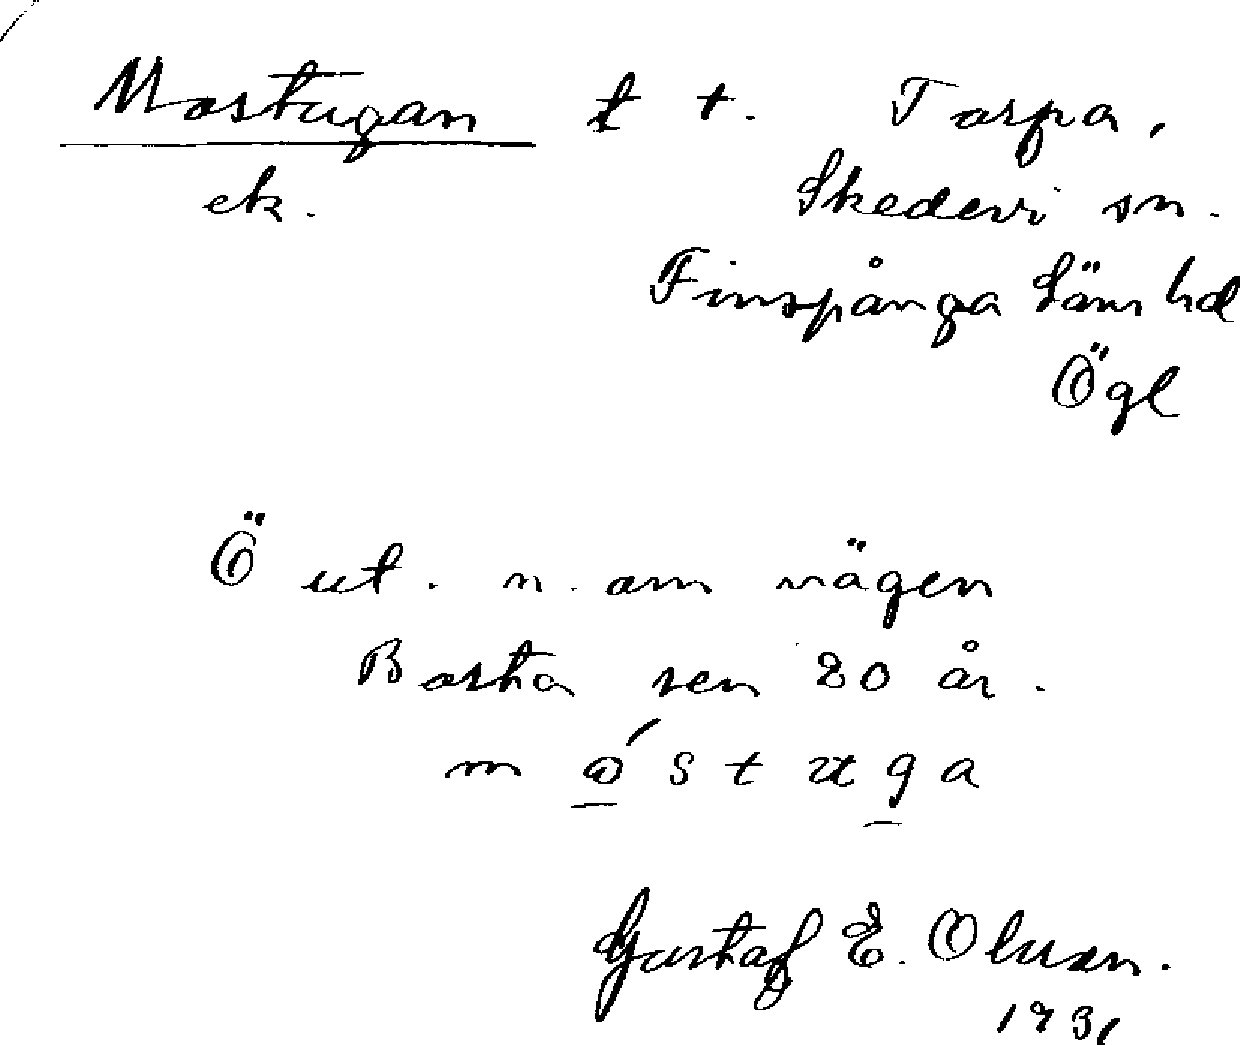 Mostugan t t. Torpa,
ek. Skedevi sn.
Finspånga läns hd
Ögl
Ö ut. n. om vägen
Borta sen 20 år.
m ó s t u g a
Gustaf E. Olsson.
1931